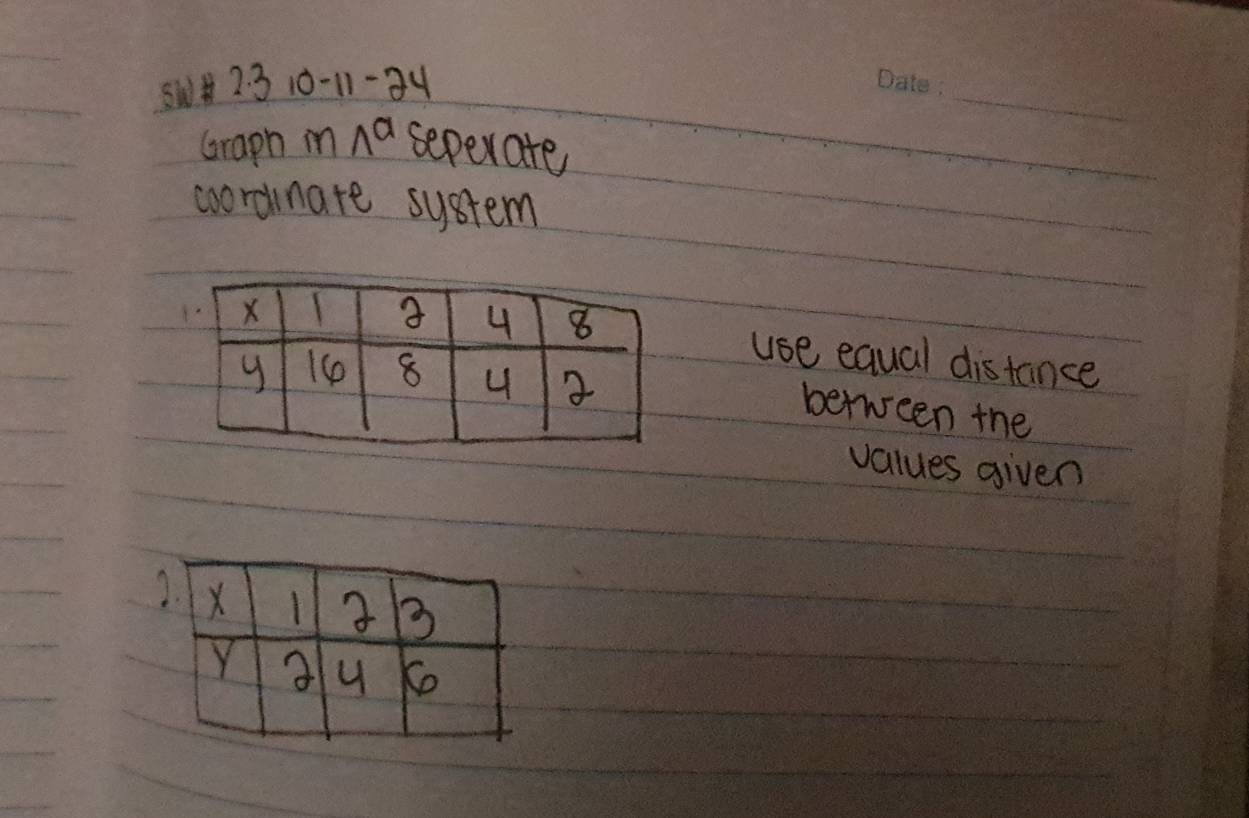 SW# 2.3 10-11-24
Date:
Graph in ^a seperate
coordinate system
1. x 1 2 4 8
y 16 8 4 2
use equal distance
between the
values given
2. X 1 2 3
Y 2 4 6